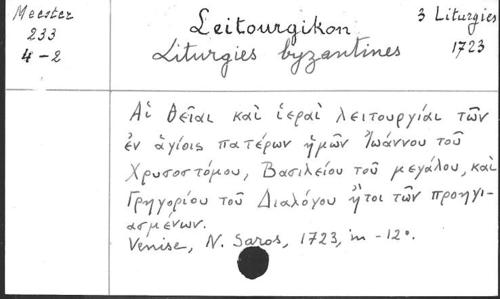 Meester
233
4-2
Leitourgikon
Liturgies byzantines
3 Liturgies
1723
Αἱ θεῖαι καὶ ἱεραὶ λειτουργίαι τῶν
ἐν ἁγίοις πατέρων ἡμῶν Ἰωάννου τοῦ
Χρυσοστόμου, Βασιλείου τοῦ μεγάλου, καὶ
Γρηγορίου τοῦ Διαλόγου ἤτοι τῶν προηγι-
ασμένων.
Venise, N. Saros, 1723, in -12°.